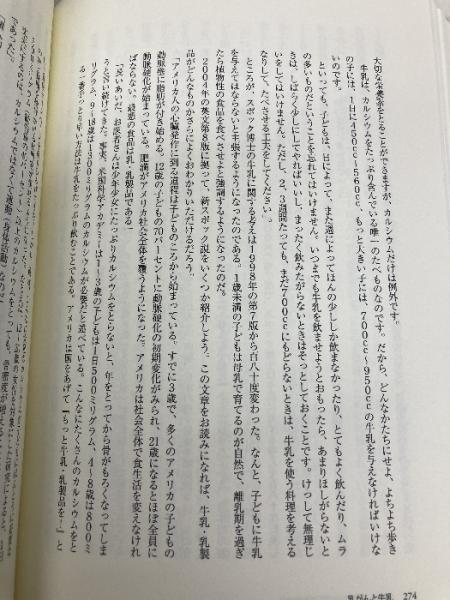 大切な栄養素をとることができますが、カルシウムだけは例外です。
牛乳は、カルシウムをたっぷり含んでいる唯一のたべものなのです。だから、どんなかたちにせよ、よちよち歩き
の子には、1日に450cc〜560cc、もっと大きい子には、700cc〜950ccの牛乳を与えなければいけな
いのです。
といっても、子どもは、日によって、また週によってほんの少ししか飲まなかったり、とてもよく飲んだり、ムラ
の多いものだということを忘れてはいけません。いつまでも牛乳を飲ませようとおもったら、あまりほしがらないと
きは、しばらく少しにしてやればいいし、まったく飲みたがらないときはそっとしておくことです。けっして無理じ
いをしてはいけません。ただし、2、3週間たっても、まだ700ccにもどらないときは、牛乳を使う料理を考える
なりして、たべさせる工夫をしてください」
ところが、スポック博士の牛乳に関する考えは1998年の第7版から百八十度変わった。なんと、子どもに牛乳
を与えてはならないと主張するようになったのである。1歳未満の子どもは母乳で育てるのが自然で、離乳期を過ぎ
たら植物性の食品を食べさせよと強調するようになったのだ。
2004年の英文第8版に拠って、新スポック説をいくつか紹介しよう。この文章をお読みになれば、牛乳・乳製
品がどんなものかさらによくおわかりいただけるだろう。
「アメリカ人の心臓発作に到る道程は子どものころから始まっている。すでに3歳で、多くのアメリカの子どもの
動脈壁に脂肪が付き始める。12歳の子どもの70パーセントに動脈硬化の初期変化がみられ、21歳になるとほぼ全員に
動脈硬化が始まっている。肥満がアメリカ社会全体を覆うようになった。アメリカは社会全体で食生活を変えなけれ
ばならない。最悪の食品は乳・乳製品である」
「長いあいだ、お医者さんは少年少女にたっぷりカルシウムをとらないと、年をとってから骨がもろくなってしま
うと言い続けてきた。事実、米国科学アカデミーは1〜3歳の子どもは1日500ミリグラム、4〜8歳は800ミ
リグラム、9〜18歳は1300ミリグラムのカルシウムが必要だと述べている。こんなにたくさんのカルシウムをと
る一番手っとり早い方法は牛乳をたっぷり飲むことである。アメリカは国をあげて『もっと牛乳・乳製品を!』と
274